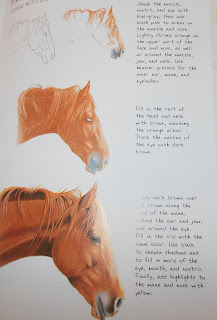 shade the muzzle,
nostril, and eye with
cool gray; then add
dark pink to areas on
the muzzle and nose.
Lightly stroke orange on
the upper part of the
face and nose, as well
as around the muzzle,
jaw, and neck. Use
heavier pressure for the
inner ear, mane, and
eyelashes.
Fill in the rest of
the head and neck
with brown, avoiding
the orange areas.
Trace the outline of
the eye with dark
brown.
dark brown over
brown along the
of the mane,
behind the ear and jaw,
and around the eye.
Fill in the iris with the
same color. Use black
to deepen shadows and
to fill in more of the
eye, mouth, and nostril.
Finally, add highlights to
the mane and nose with
yellow.